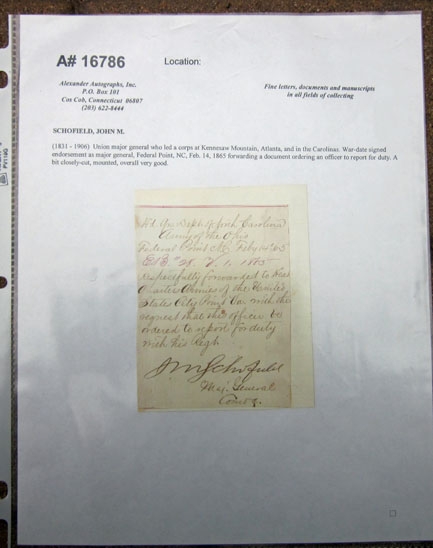 A# 16786
Location:
Alexander Autographs, Inc.
P.O. Box 101
Cos Cob, Connecticut 06807
(203) 622-8444
Fine letters, documents and manuscripts
in all fields of collecting
SCHOFIELD, JOHN M.
(1831 - 1906) Union major general who led a corps at Kennesaw Mountain, Atlanta, and in the Carolinas. War-date signed
endorsement as major general, Federal Point, NC, Feb. 14, 1865 forwarding a document ordering an officer to report for duty. A
bit closely-cut, mounted, overall very good.
Hd Qrs Dept of North Carolina
Army of the Ohio
Federal Point NC, Feby 14 65
1865
respectfully forwarded to Head
Quarters Armies of the United
States City Point Va. with the
request that this officer be
ordered to report for duty
with his Regt.
JMSchofield
Maj. General
Comdg.